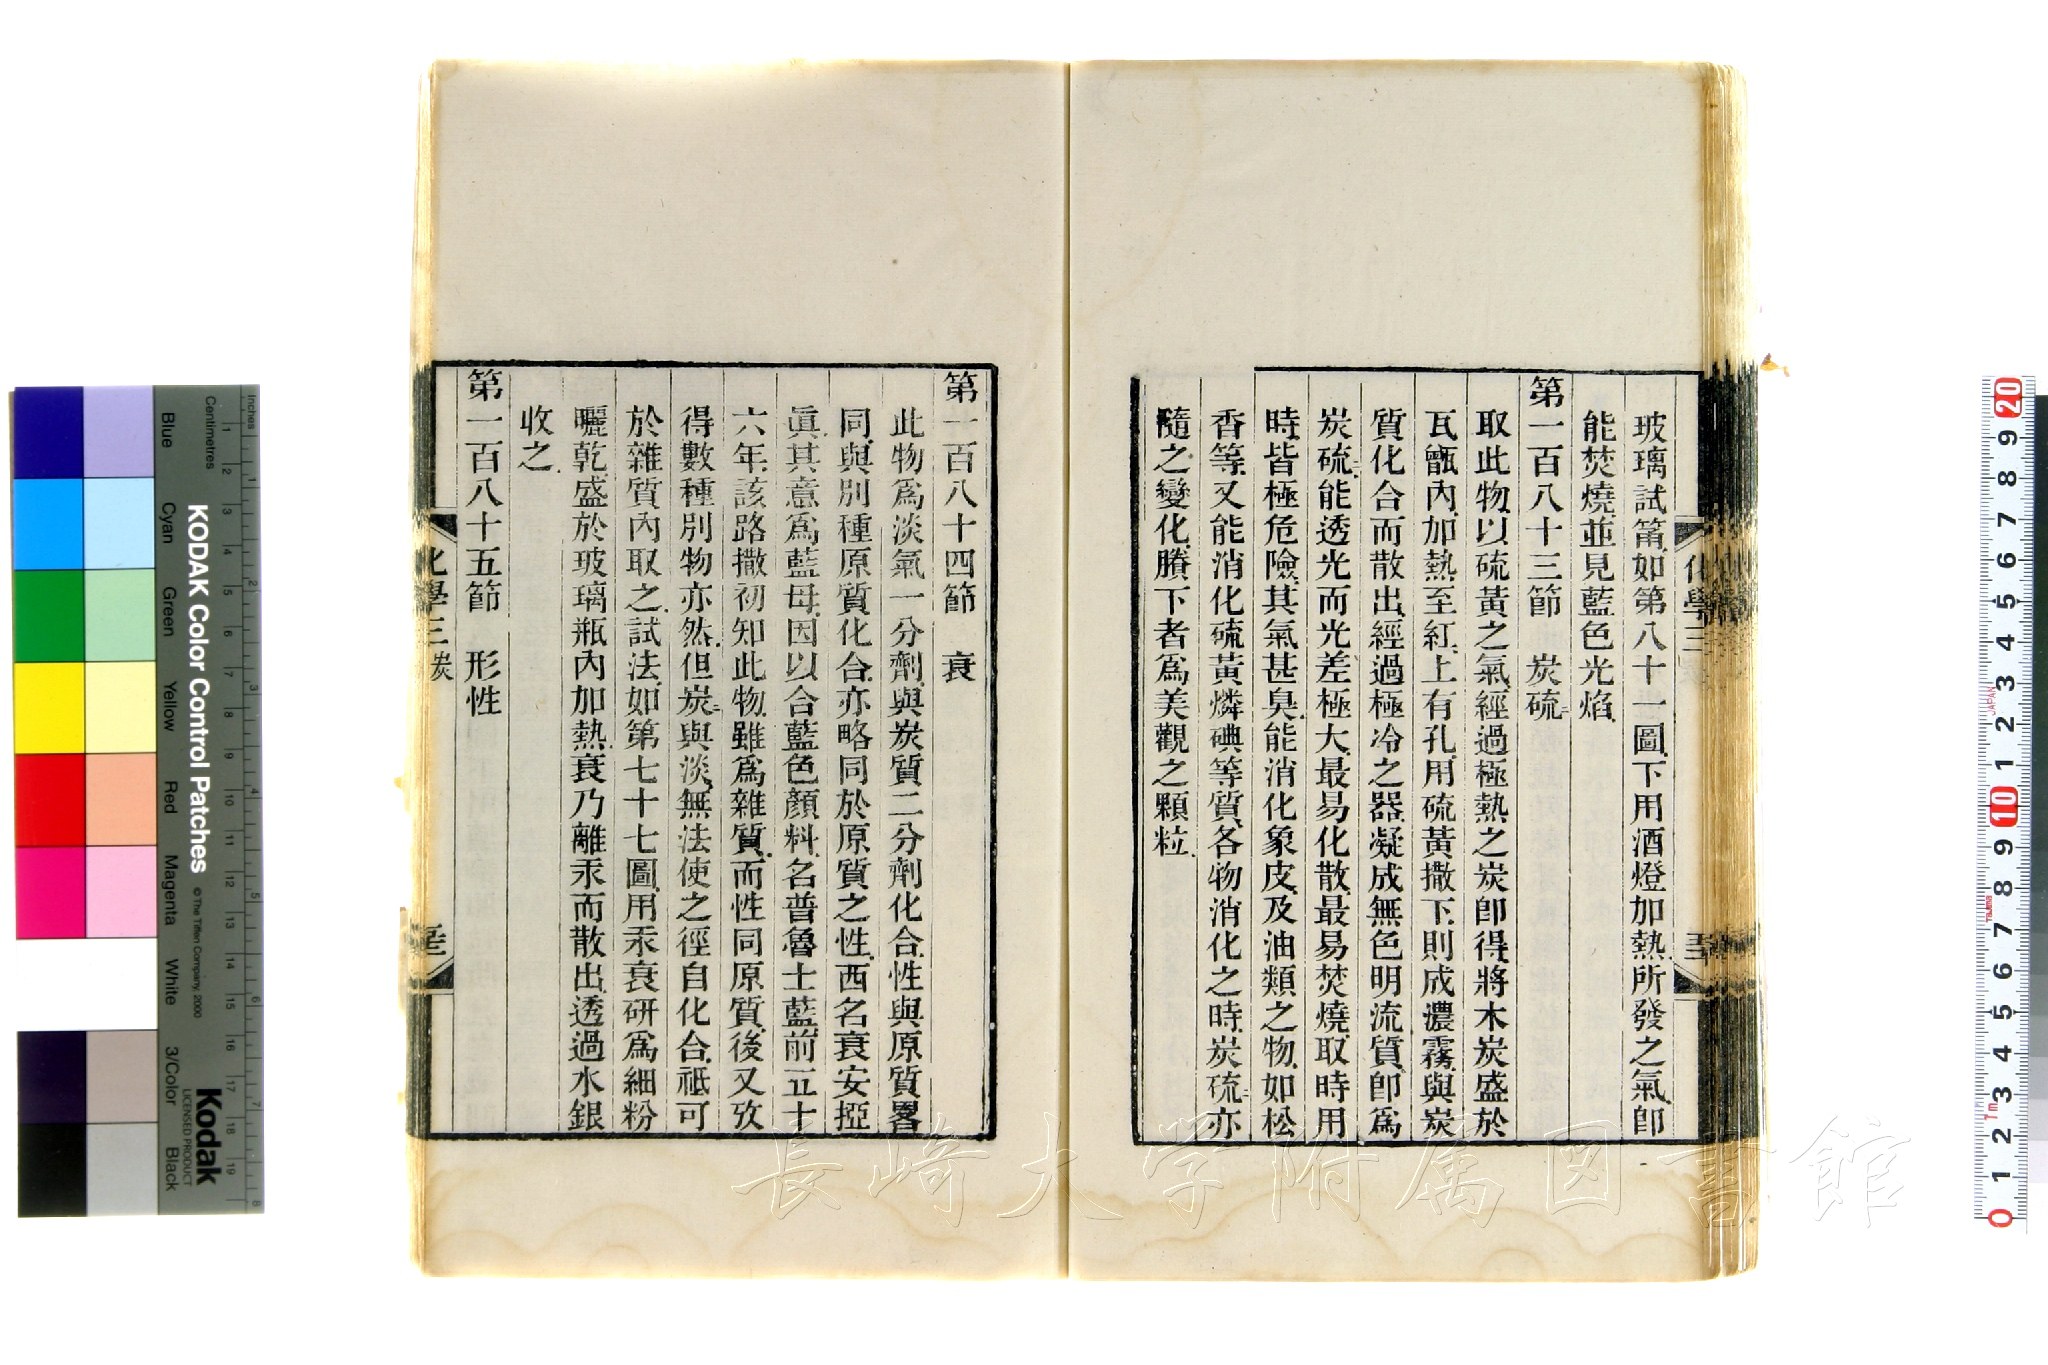 玻璃試筩如第八十一圖下用酒燈加熱所發之氣卽
能焚燒並見藍色光焰
第一百八十三節　炭硫二
取此物以硫黃之氣經過極熱之炭卽得將木炭盛於
瓦甑內加熱至紅上有孔用硫黃撒下則成濃霧與炭
質化合而散出經過極冷之器凝成無色明流質卽爲
炭硫二能透光而光差極大最易化散最易焚燒取時用
時皆極危險其氣甚臭能消化象皮及油類之物如松
香等又能消化硫黃燐碘等質各物消化之時炭硫二亦
隨之變化賸下者爲美觀之顆粒
化學三 炭
第一百八十四節　衰
此物爲淡氣一分劑與炭質二分劑化合性與原質畧
同與別種原質化合亦略同於原質之性西名衰安掗
眞其意爲藍母因以合藍色顏料名普魯士藍前五十
六年該路撒初知此物雖爲雜質而性同原質後又攷
得數種別物亦然但炭二與淡無法使之徑自化合祗可
於雜質內取之試法如第七十七圖用汞衰研爲細粉
曬乾盛於玻璃瓶內加熱衰乃離汞而散出透過水銀
收之
第一百八十五節　形性
化學三 炭
KODAK Color Control Patches
© The Tiffen Company, 2000
Kodak
LICENSED PRODUCT
Inches
Centimetres
Blue
Cyan
Green
Yellow
Red
Magenta
White
3/Color
Black
1 2 3 4 5 6 7 8 9 10 11 12 13 14 15 16 17 18 19
1 2 3 4 5 6 7 8
20 9 8 7 6 5 4 3 2 1 10 9 8 7 6 5 4 3 2 1 0
JAPAN
長崎大学附属図書館